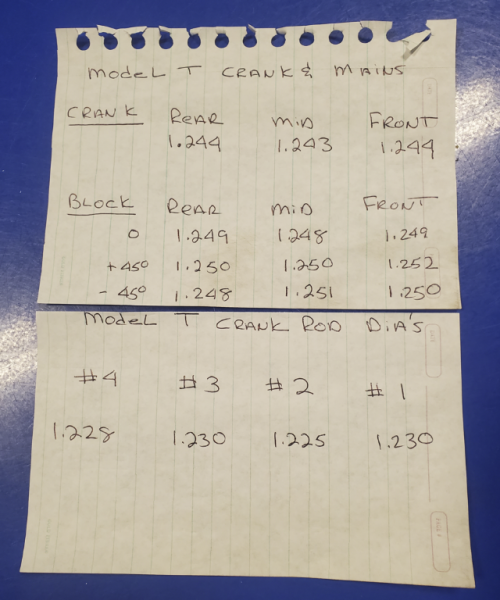 MODEL T CRANK & MAINS
CRANK REAR MID FRONT
1.244 1.243 1.244
BLOCK REAR MID FRONT
0 1.249 1.248 1.249
+45° 1.250 1.250 1.252
- 45° 1.248 1.251 1.250
MODEL T CRANK ROD DIA'S
#4 #3 #2 #1
1.228 1.230 1.225 1.230